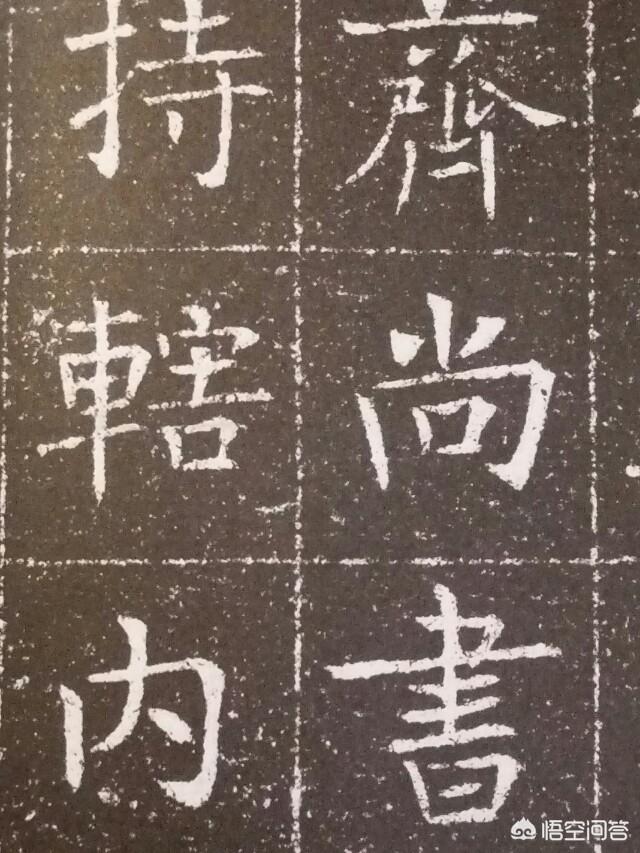 齊尚書
持轄内
悟空问答